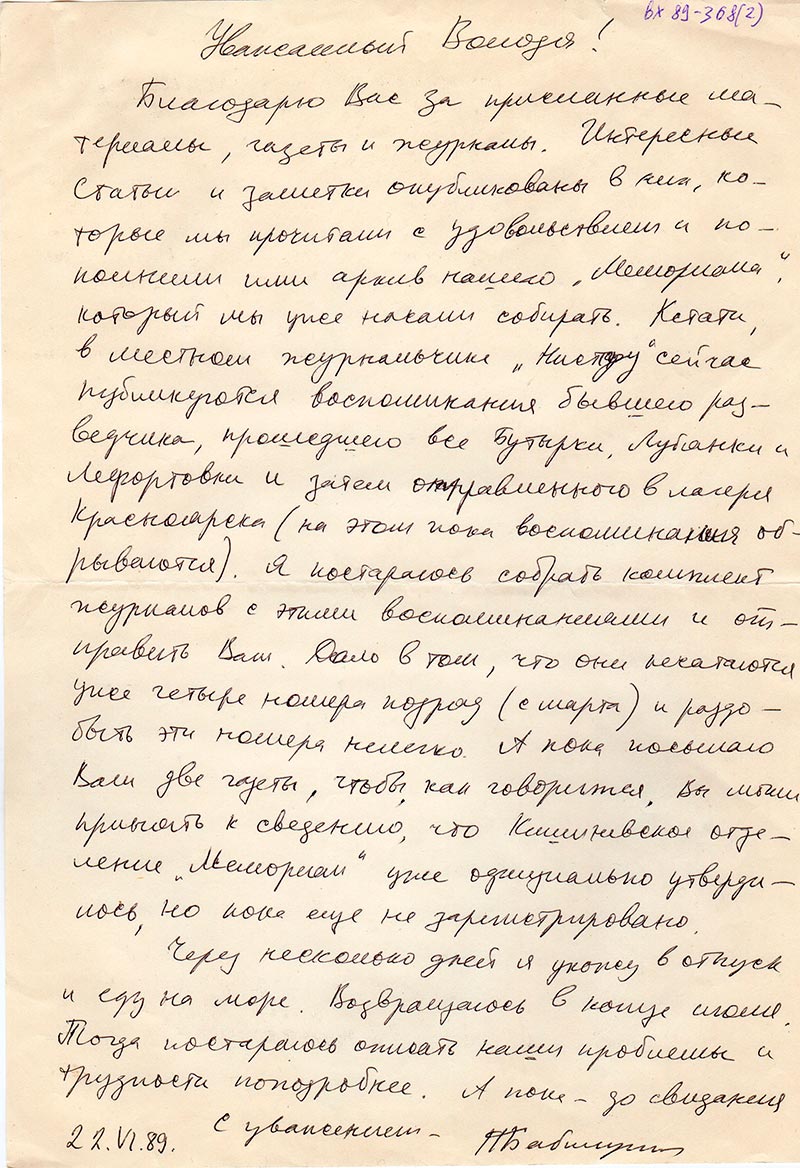 вх 89-368(2)
Уважаемый Володя!
Благодарю Вас за присланные ма-
териалы, газеты и журналы. Интересные
статьи и заметки опубликованы в них, ко-
торые мы прочитали с удовольствием и по-
полнили ими архив нашего „Мемориала",
который мы уже начали собирать. Кстати,
в местном журнальчике „Нистру" сейчас
публикуются воспоминания бывшего раз-
ведчика, прошедшего все Бутырки, Лубянки и
Лефортовки и затем отправленного в лагеря
Красноярска (на этом пока воспоминания об-
рываются). Я постараюсь собрать комплект
журналов с этими воспоминаниями и от-
править Вам. Дело в том, что они печатаются
уже четыре номера подряд (с марта) и раздо-
быть эти номера нелегко. А пока посылаю
Вам две газеты, чтобы, как говорится, Вы могли
принять к сведению, что Кишиневское отде-
ление „Мемориал" уже официально утверди-
лось, но пока еще не зарегистрировано.
Через несколько дней я ухожу в отпуск
и еду на море. Возвращаюсь в конце июля.
Тогда постараюсь описать наши проблемы и
трудности поподробнее. А пока – до свидания
С уважением –
22.VI.89.